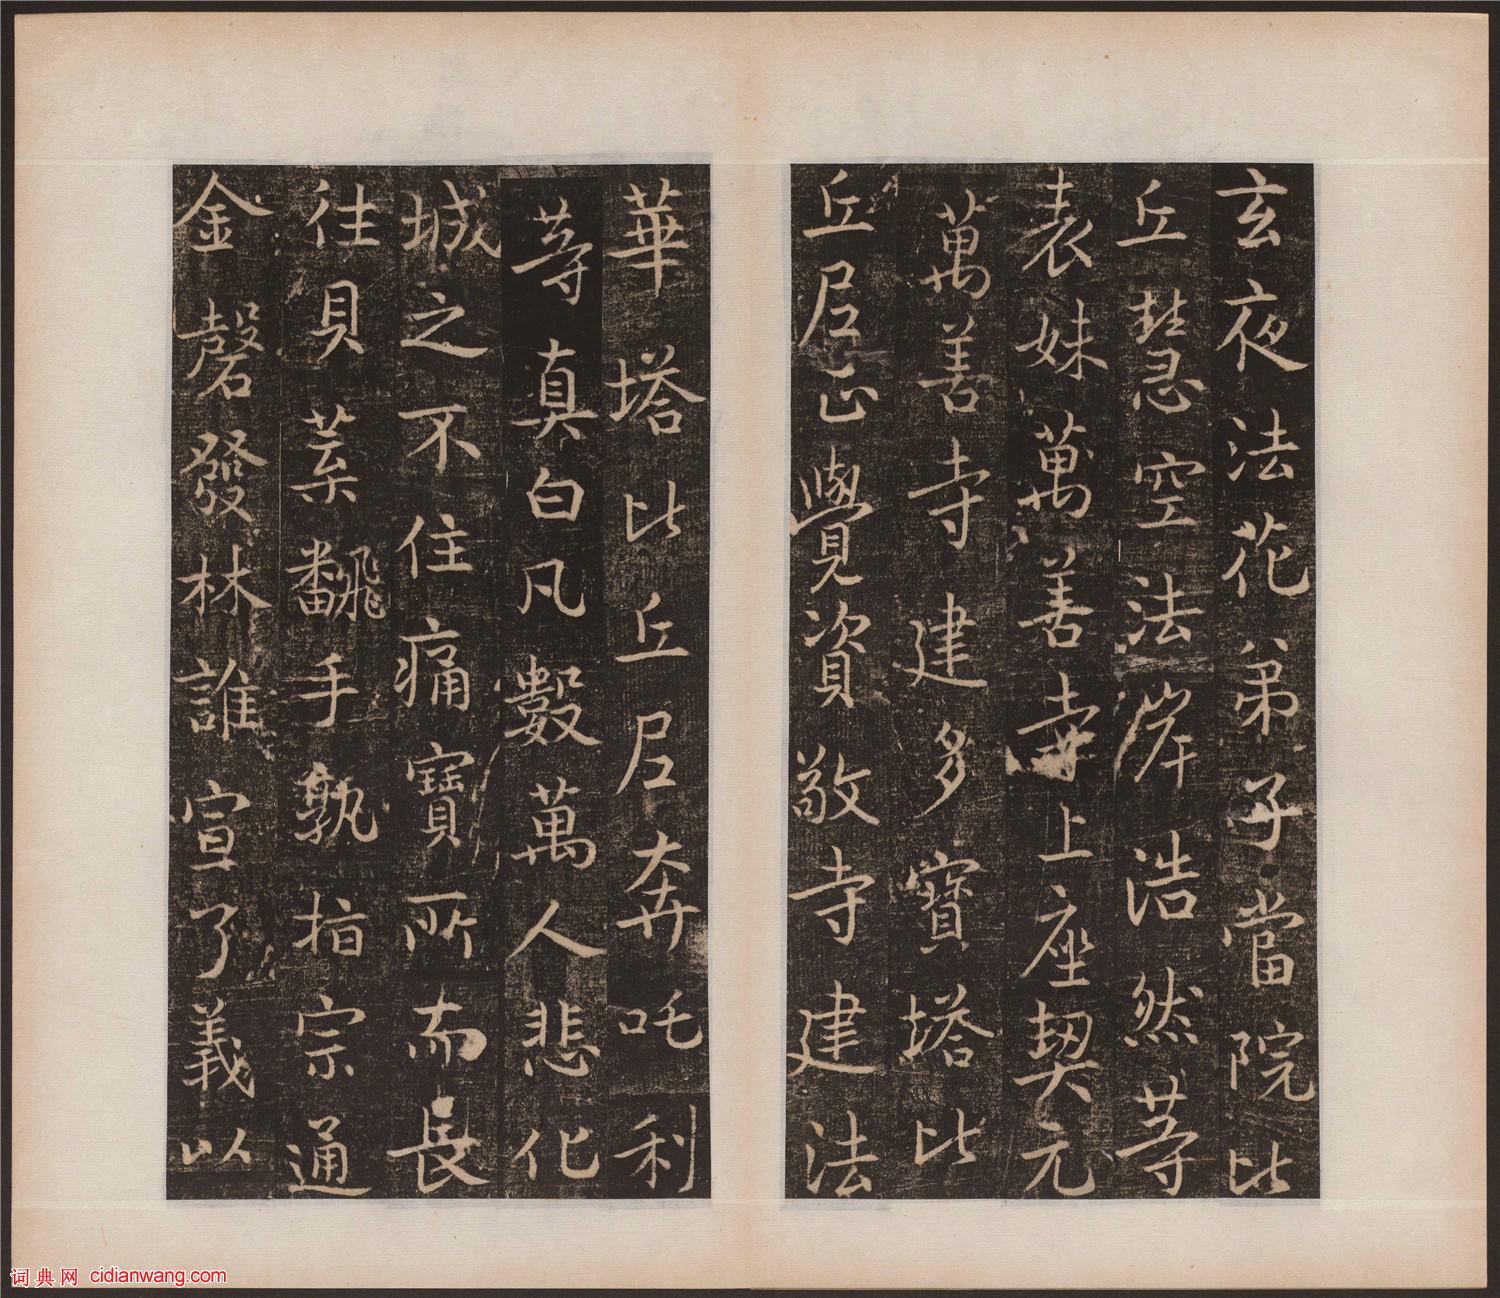 玄夜法花弟子當院比
丘慧忍空法岸浩然等
表妹萬善寺上座契元
萬善寺建多寶塔比
丘尼正覺資敬寺建法
華塔比丘尼奔吒利
等真白凡數萬人悲化
城之不住痛寶所而長
往貝葉翻手孰指宗通
金磬發林誰宣了義以
词典网 cidianwang.com